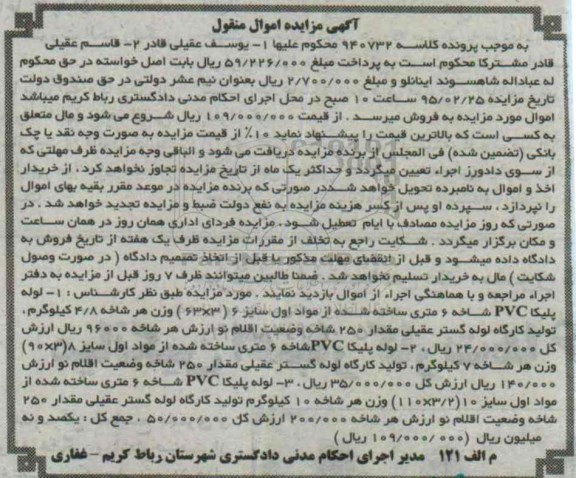 آگهی مزایده اموال منقول
به موجب پرونده کلاسه ۹۴۰۷۳۲ محکوم علیها ۱- یوسف عقیلی قادر ۲- قاسم عقیلی
قادر مشترکا محکوم است به پرداخت مبلغ ۵۹/۲۲۶/۰۰۰ ریال بابت اصل خواسته در حق محکوم
له عبداله شاهسوند اینانلو و مبلغ ۲/۷۰۰/۰۰۰ ریال بعنوان نیم عشر دولتی در حق صندوق دولت
تاریخ مزایده ۹۵/۰۲/۲۵ ساعت ۱۰ صبح در محل اجرای احکام مدنی دادگستری رباط کریم میباشد
اموال مورد مزایده به فروش میرسد . از قیمت ۱۰۹/۰۰۰/۰۰۰ ریال شروع می شود و مال متعلق
به کسی است که بالاترین قیمت را پیشنهاد نماید ۱۰٪ از قیمت مزایده به صورت وجه نقد یا چک
بانکی (تضمین شده) فی المجلس از برنده مزایده دریافت می شود و الباقی وجه مزایده ظرف مهلتی که
از سوی دادورز اجراء تعیین میگردد و حداکثر یک ماه از تاریخ مزایده تجاوز نخواهد کرد . از خریدار
اخذ و اموال به نامبرده تحویل خواهد شددر صورتی که برنده مزایده در موعد مقرر بقیه بهای اموال
را نپردازد . سپرده او پس از کسر هزینه مزایده به نفع دولت ضبط و مزایده تجدید خواهد شد . در
صورتی که روز مزایده مصادف با ایام تعطیل شود . مزایده فردای اداری همان روز در همان ساعت
و مکان برگزار میگردد . شکایت راجع به تخلف از مقررات مزایده ظرف یک هفته از تاریخ فروش به
دادگاه داده میشود و قبل از انقضای مهلت مذکور یا قبل از اتخاذ تصمیم دادگاه ( در صورت وصول
شکایت ) مال به خریدار تسلیم نخواهد شد . ضمنا طالبین میتوانند ظرف ۷ روز قبل از مزایده به دفتر
اجراء مراجعه و با هماهنگی اجراء از اموال بازدید نمایند . مورد مزایده طبق نظر کارشناس : ۱- لوله
پلیکا PVC شاخه ۶ متری ساخته شده از مواد اول سایز ۶ ( ۳×۶۳) وزن هر شاخه ۴/۸ کیلوگرم .
تولید کارگاه لوله گستر عقیلی مقدار ۲۵۰ شاخه وضعیت اقلام نو ارزش هر شاخه ۹۶۰۰۰ ریال ارزش
کل ۲۴/۰۰۰/۰۰۰ ریال . ۲- لوله پلیکا PVCشاخه ۶ متری ساخته شده از مواد اول سایز ۸(۳×۹۰)
وزن هر شاخه ۷ کیلوگرم . تولید کارگاه لوله گستر عقیلی مقدار ۲۵۰ شاخه وضعیت اقلام نو ارزش
۱۴۰/۰۰۰ ریال ارزش کل ۳۵/۰۰۰/۰۰۰ ریال . ۳- لوله پلیکا PVC شاخه ۶ متری ساخته شده از
مواد اول سایز ۱۰ (۳/۲×۱۱۰) وزن هر شاخه ۱۰ کیلوگرم تولید کارگاه لوله گستر عقیلی مقدار ۲۵۰
شاخه وضعیت اقلام نو ارزش هر شاخه ۲۰۰/۰۰۰ ارزش کل ۵۰/۰۰۰/۰۰۰ . جمع کل : یکصد و نه
میلیون ریال (۱۰۹/۰۰۰/۰۰۰ ریال )
م الف ۱۲۱ مدیر اجرای احکام مدنی دادگستری شهرستان رباط کریم – غفاری